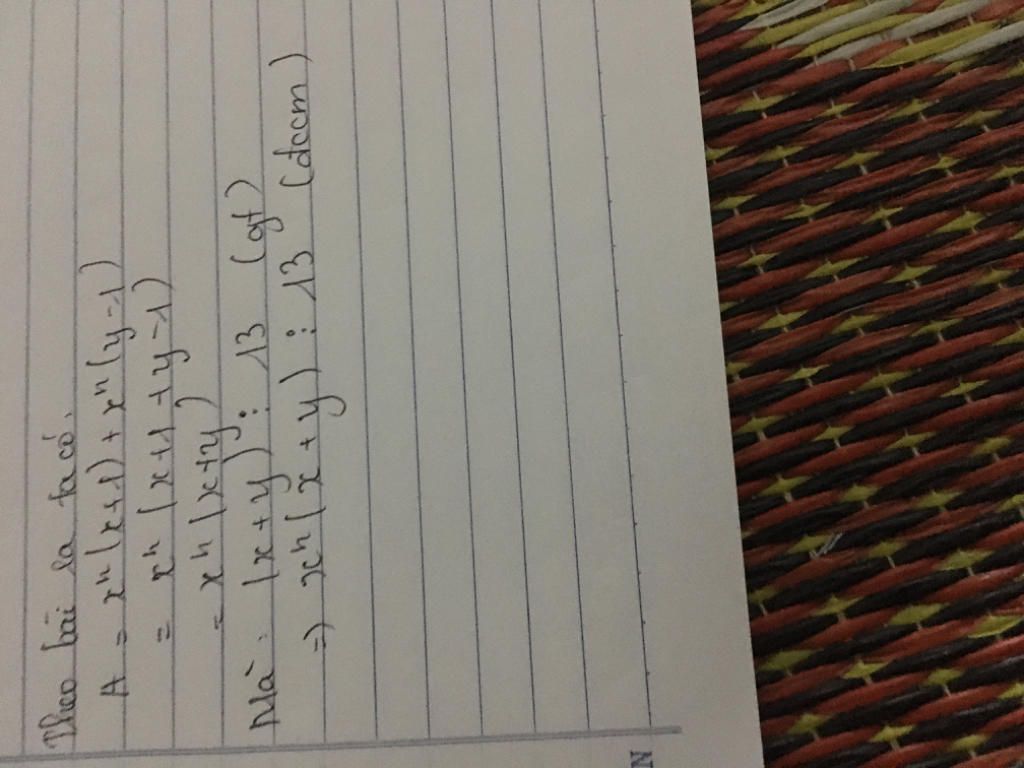 Theo bài ra ta có.
A = xⁿ(x+1) + xⁿ(y-1)
= xⁿ(x+1+y-1)
= xⁿ(x+y)
Mà: (x+y) ⋮ 13 (gt)
=) xⁿ(x+y) ⋮ 13 (đccm)
N